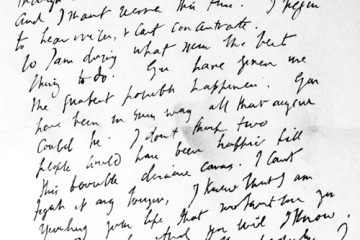 And I shant recover this time. I begin
to hear voices, & cant concentrate.
So I am doing what seems the best
thing to do. You have given me
the greatest possible happiness. You
have been in every way all that anyone
could be. I dont think two
people could have been happier till
this terrible disease came. I cant
fight it any longer, I know that I am
spoiling your life, that without me you
could work. And you will I know.